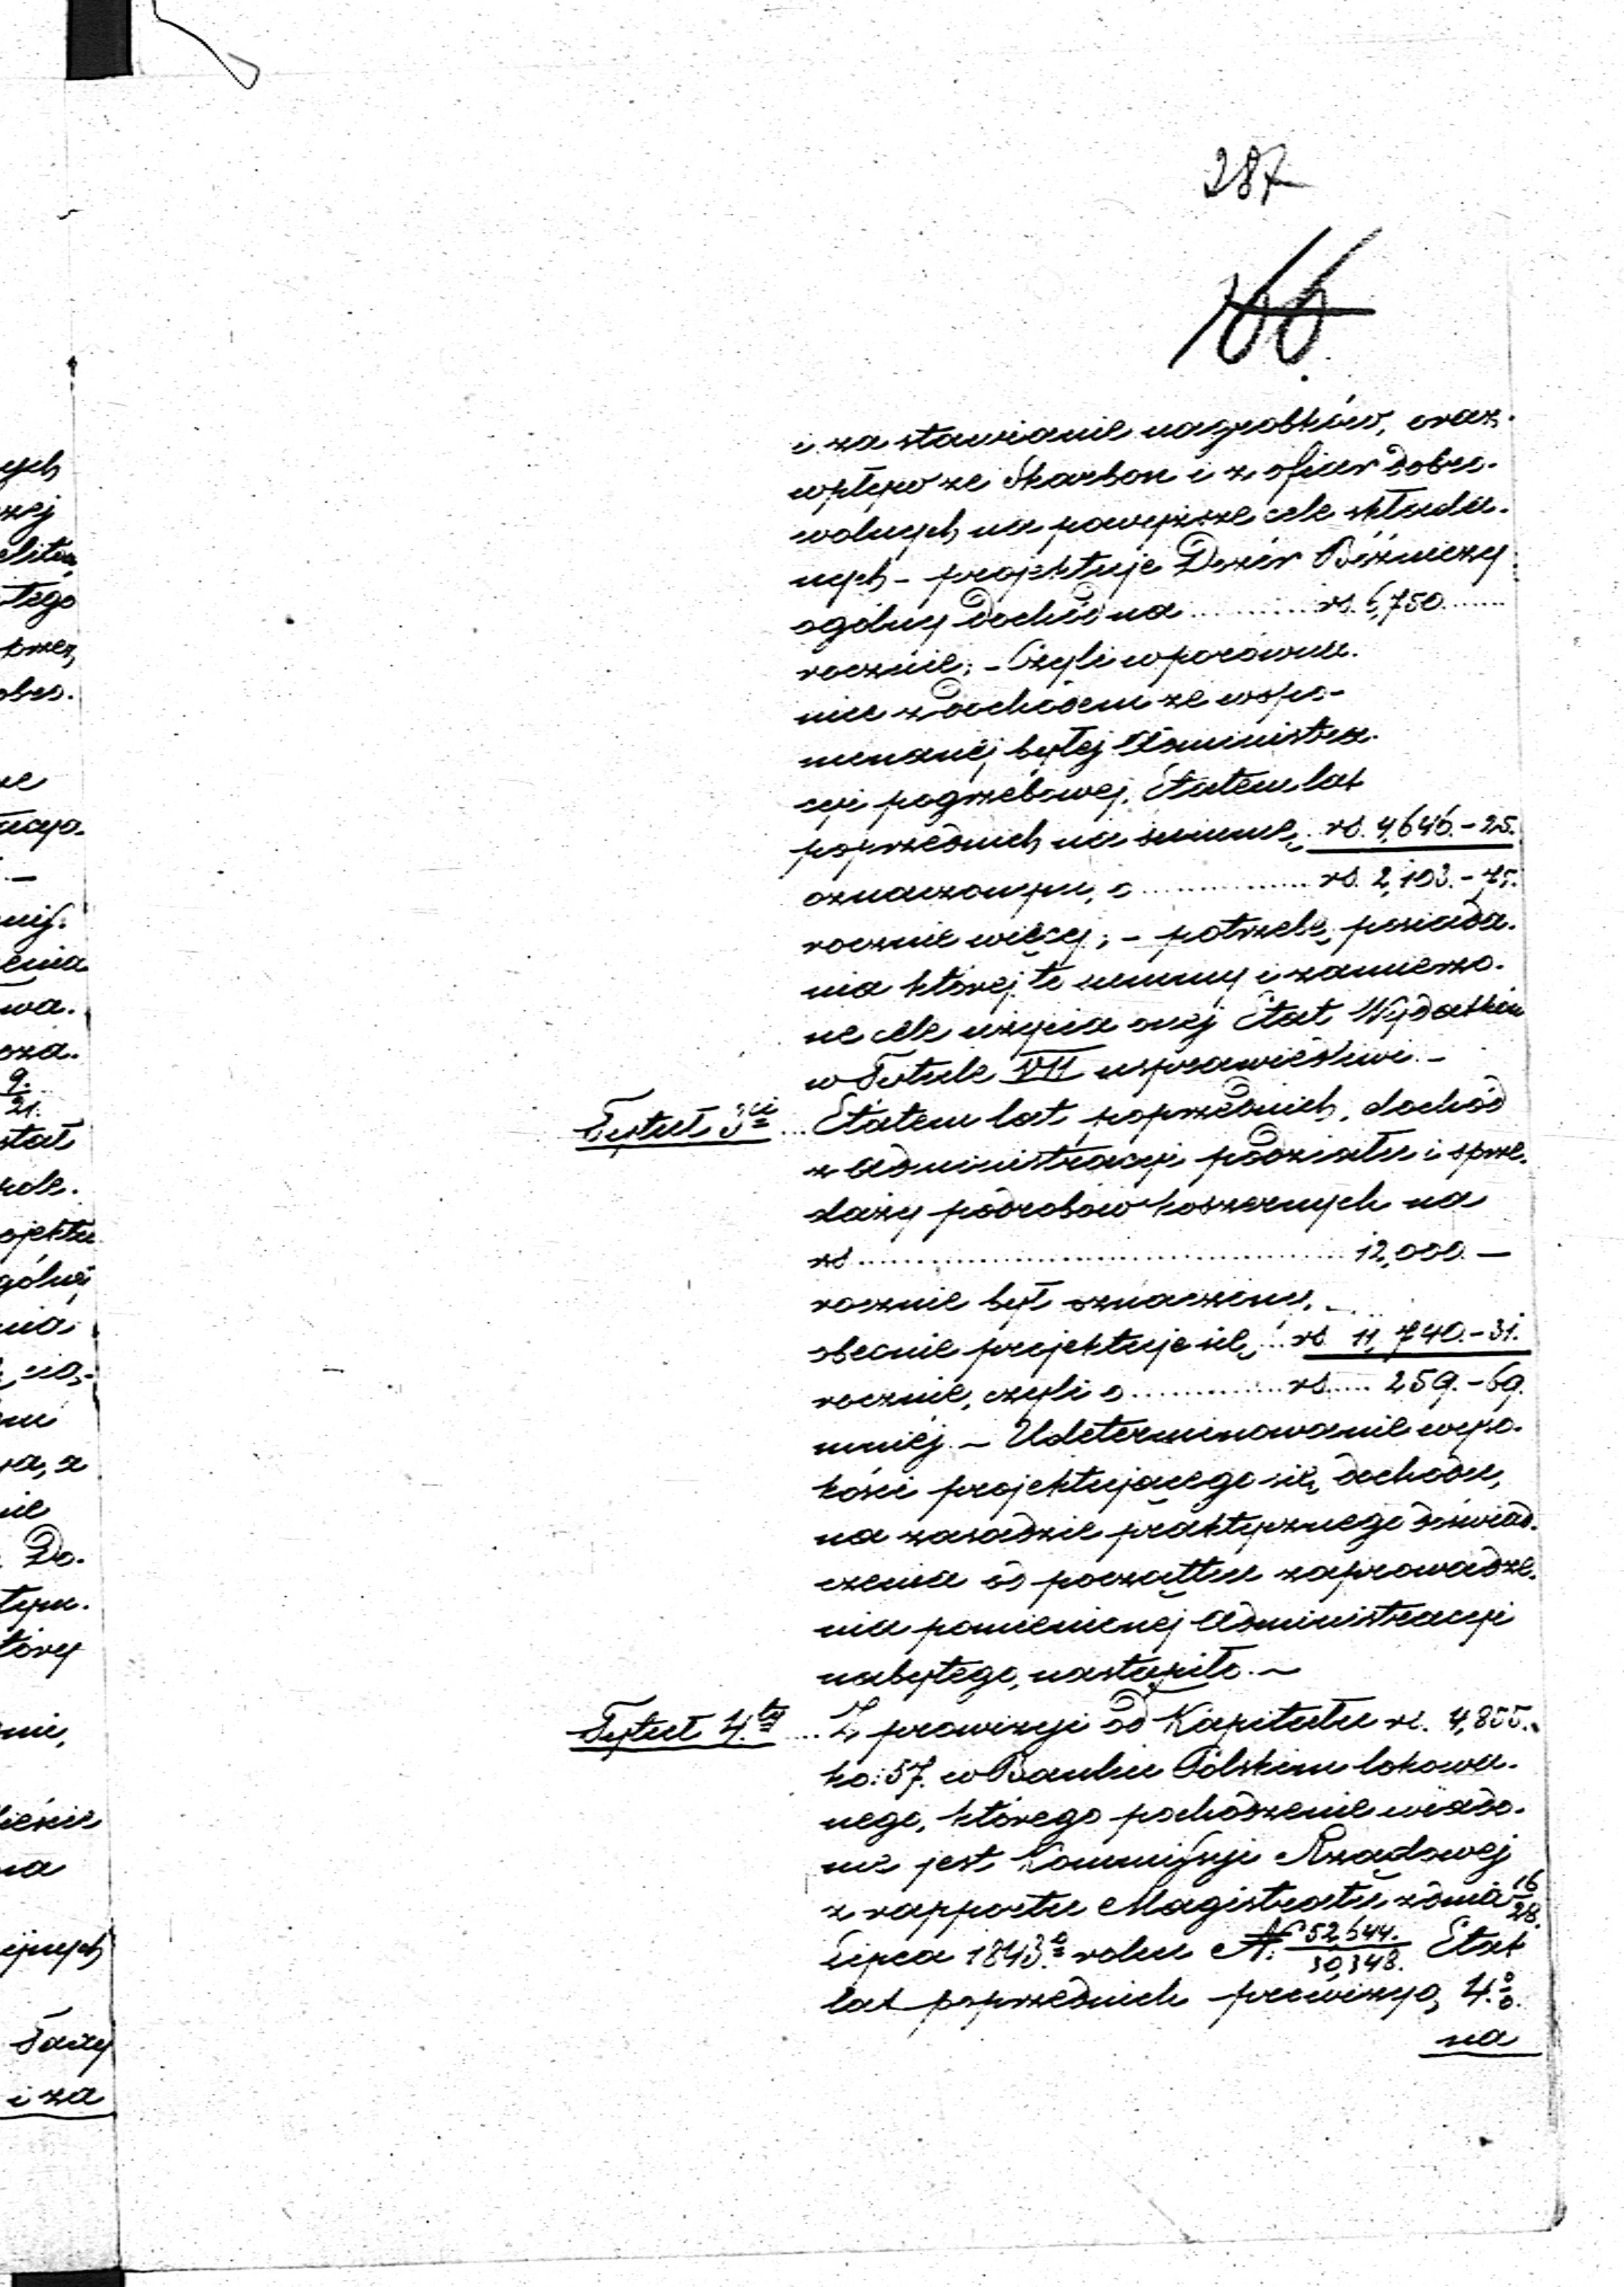 287
166.
i za stawianie nagrobków, oraz
wpływ ze Skarbon i z ofiar dobro-
wolnych na powyższe cele składa-
nych – projektuje Dozór Bóżniczy
ogólny dochód na ........... rs. 6,750 ......
rocznie; – Czyli w porówna-
niu z dochodem ze wspo-
mnianéj byłej Administra-
cyi pogrzebowej, Etatem lat
poprzednich na summę rs. 4,646.-25.
oznaczonym, o ............... rs. 2,103.-75.
rocznie więcej; – potrzebę posiada-
nia której to summy i zamierzo-
ne cele użycia onej Etat Wydatków
w Tytule VII usprawiedliwi. –
Tytuł 3ci ... Etatem lat poprzednich, dochód
z Administracyi podziału i sprze-
daży podrobów koszernych na
rs ........................................ 12,000. –
rocznie był oznaczony, –
obecnie projektuje się ... rs. 11,740.-31.
rocznie, czyli o ............. rs ..... 259.-69.
mniéj. – Udeterminowanie wyso-
kości projektującego się dochodu,
na zasadzie praktycznego doświad-
czenia od początku zaprowadze-
nia pomienionej Administracyi
nabytego, nastąpiło. –
Tytuł 4ty ... Z prowizyi od Kapitału rs. 4,855.
ko: 57. w Banku Polskim lokowa-
nego, którego pochodzenie wiado-
me jest Kommissyi Rządowej
z rapportu Magistratu z dnia 16/28.
Lipca 1843.o roku N. 52,644./30,348. Etat
lat poprzednich prowizyą 4.%
na
ych
tego
obro.
ze
enia
wa.
9.
21.
jektu
gólnéj
nia
ra, a
nie
Do-
tym.
tóry
nie,
na
Taxy
i za